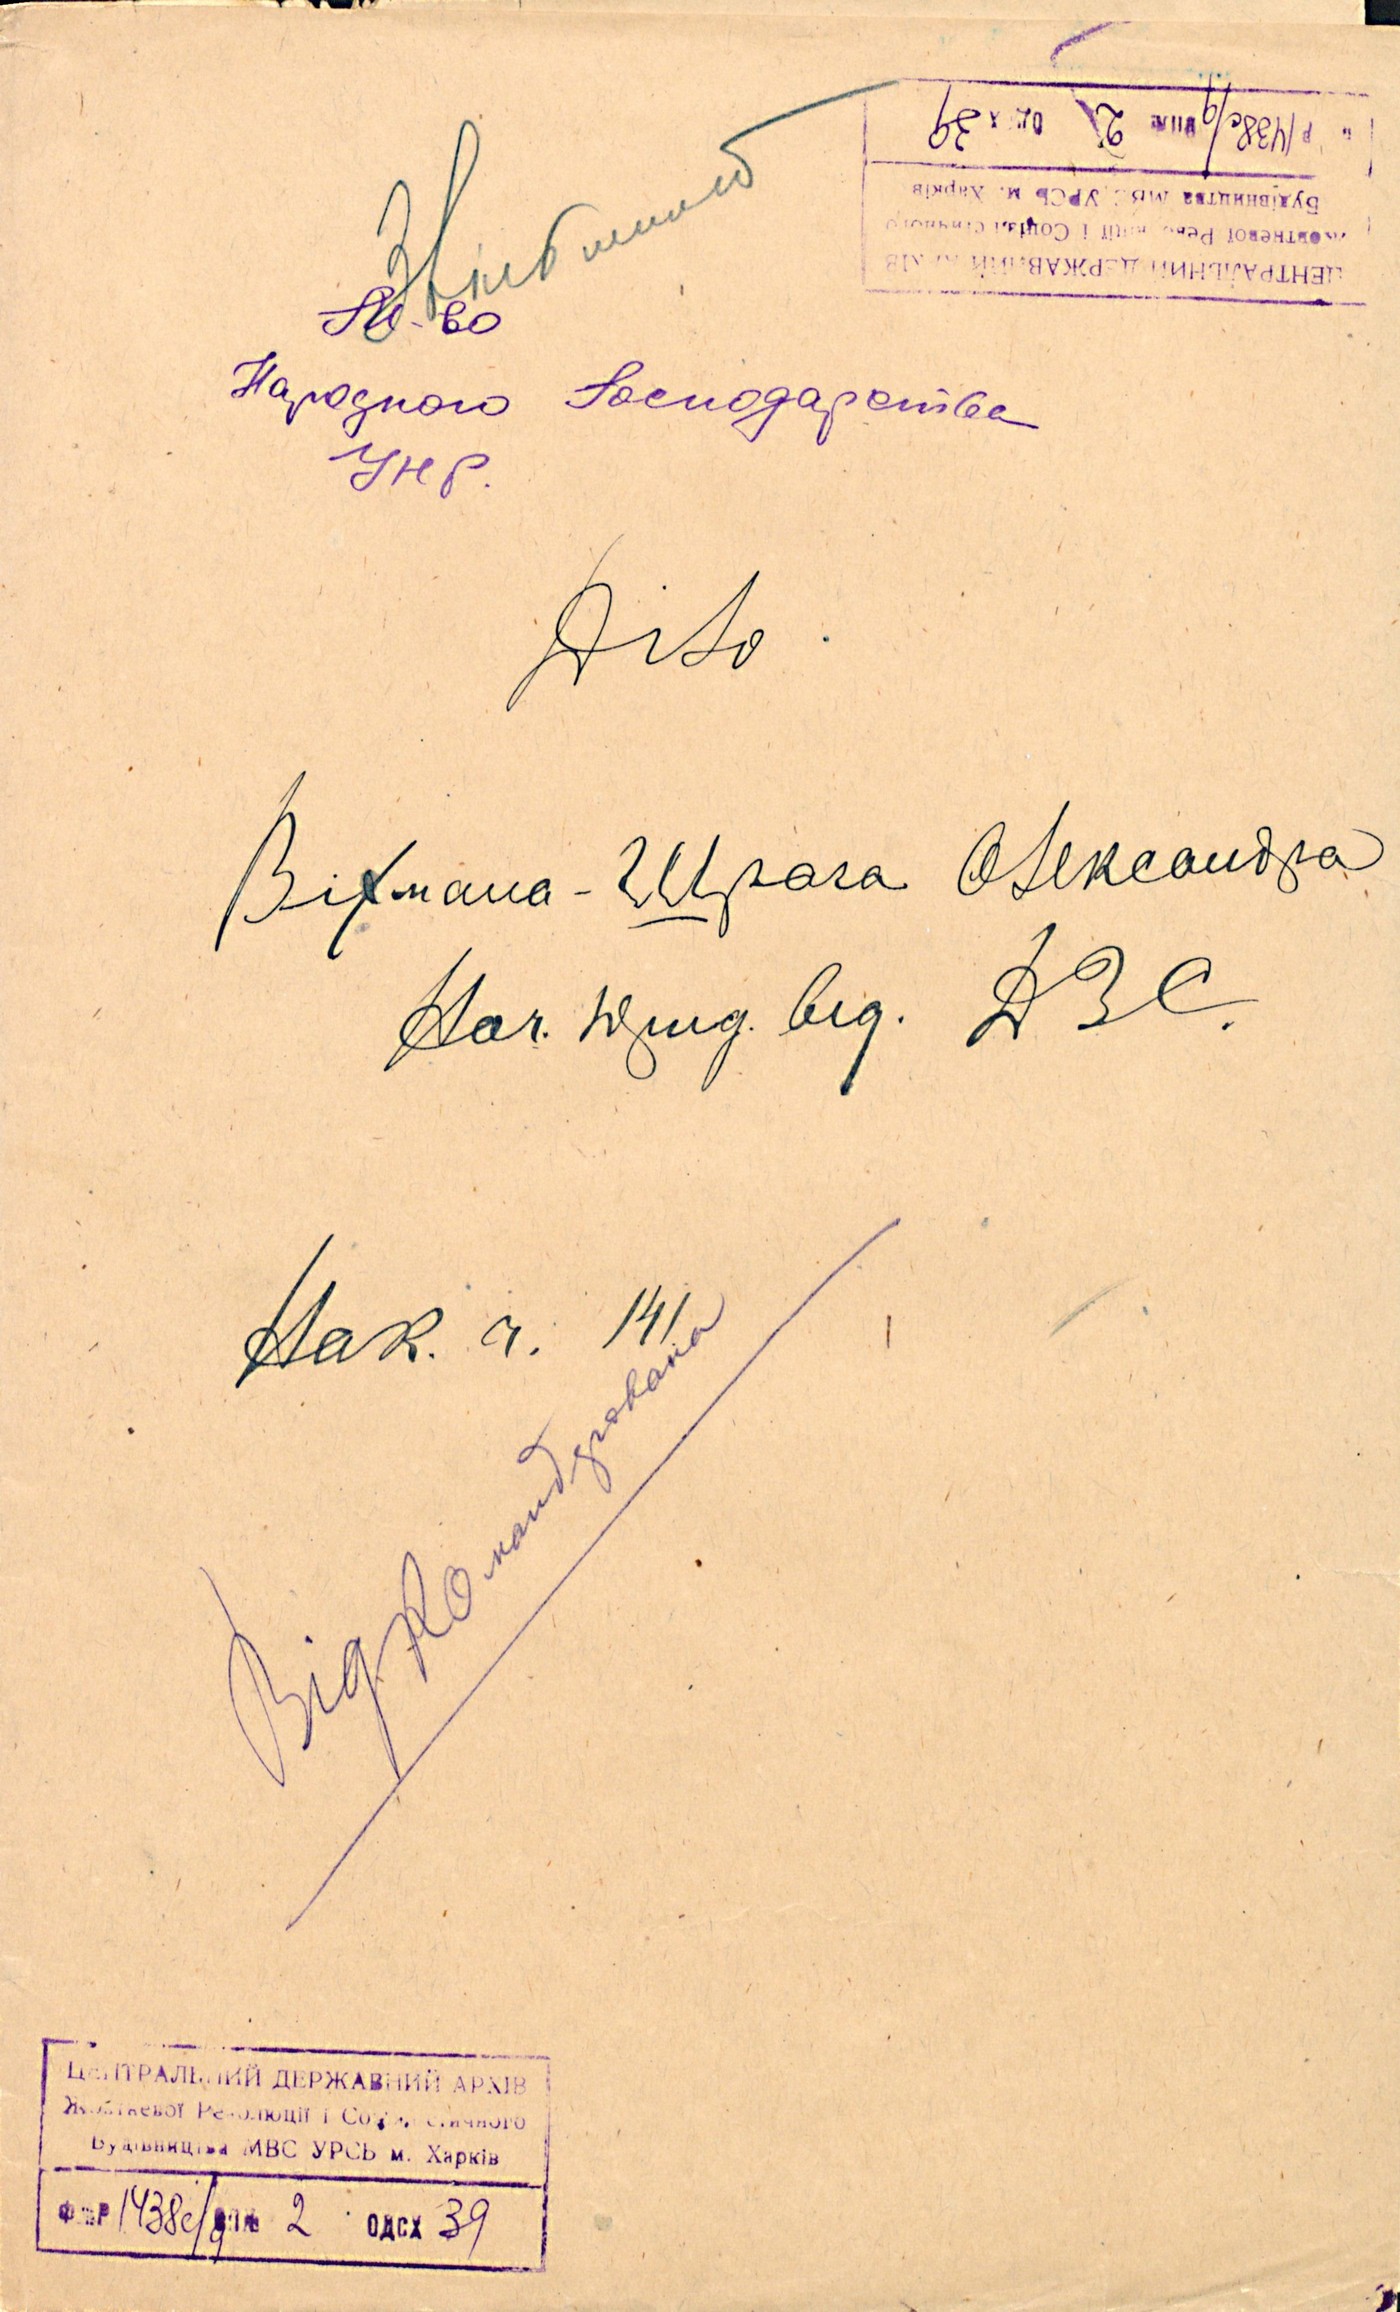 Звільнений
М-во
Народного Господарства
УНР.
Діло.
Віхмана-Шрага Олександра
Нач. Юрид. від. ДЗС.
Нак. ч. 141
Відкомандирована
ЦЕНТРАЛЬНИЙ ДЕРЖАВНИЙ АРХІВ
Жовтневої Революції і Соціалістичного
Будівництва МВС УРСР м. Харків
1438с/9 оп№ 2 ОДСХ 39
ЦЕНТРАЛЬНИЙ ДЕРЖАВНИЙ АРХІВ
Жовтневої Революції і Соціалістичного
Будівництва МВС УРСР м. Харків
Р 1438с/9 оп№ 2 ОДСХ 39